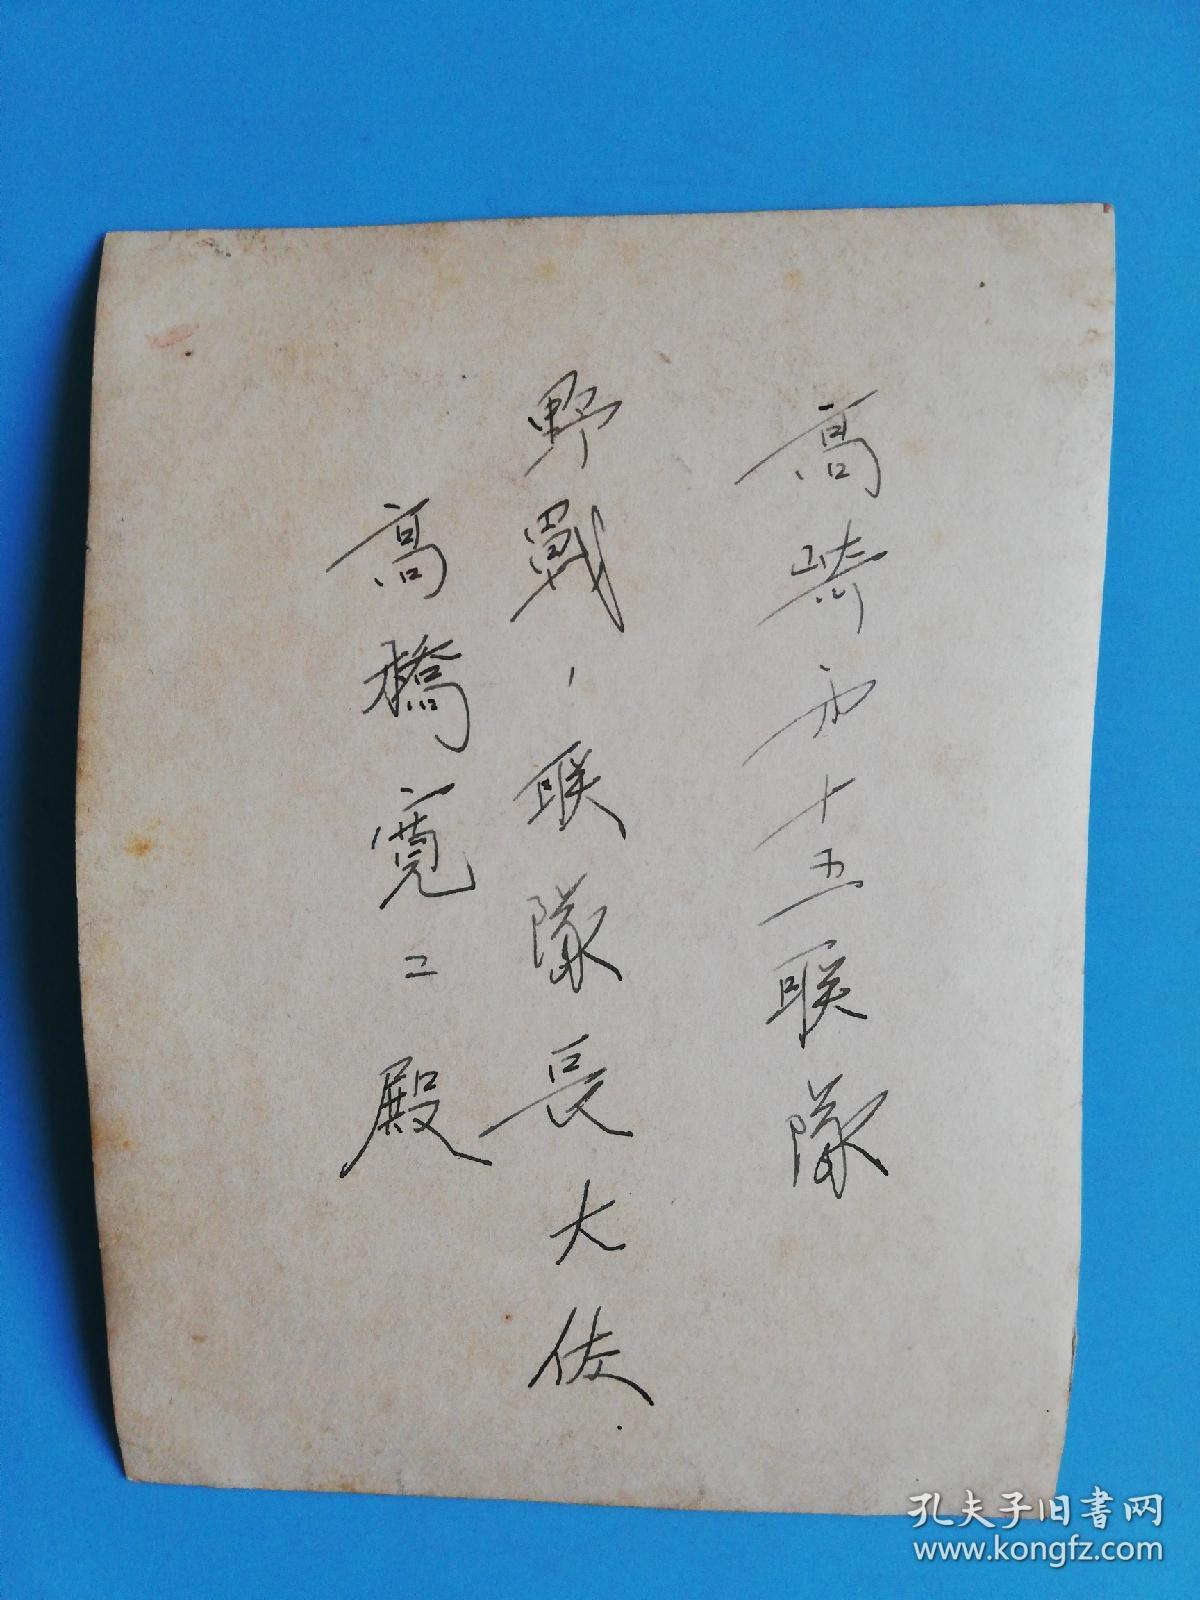 高崎第十五联隊
野戰、联隊長大佐.
高橋寛二殿
孔夫子旧书网
www.kongfz.com